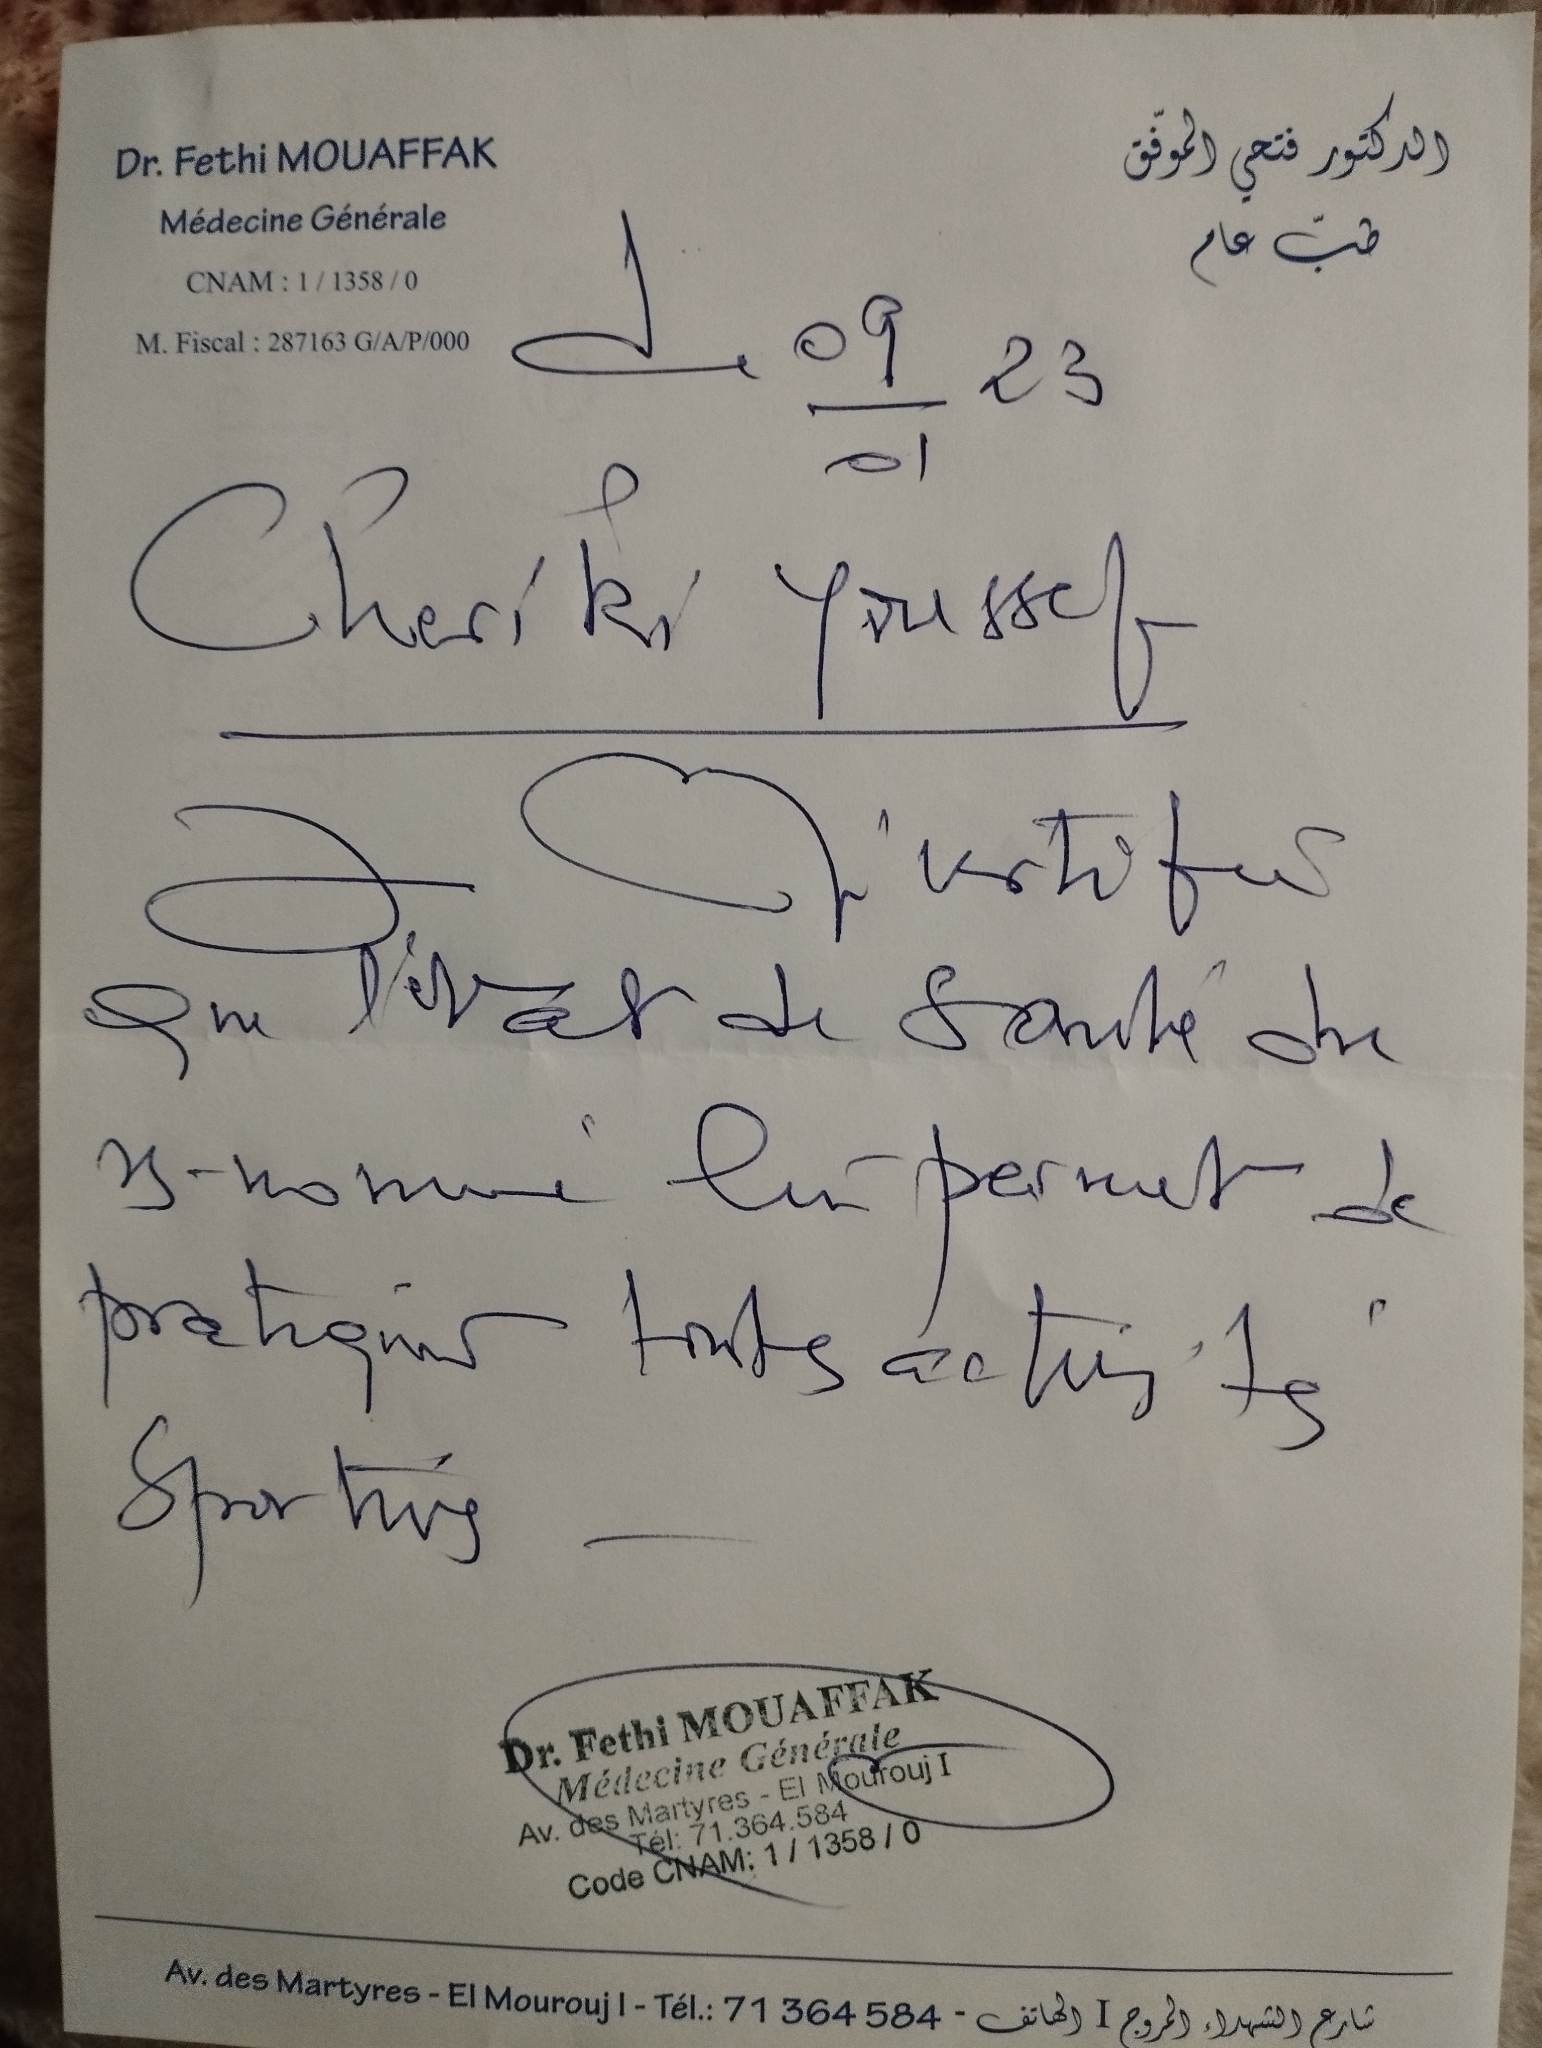 Dr. Fethi MOUAFFAK
Médecine Générale
CNAM : 1 / 1358 / 0
M. Fiscal : 287163 G/A/P/000
الدكتور فتحي الموفّق
طبّ عام
Le 09/01 23
Cheriki Youssef
Je certifie
que l'état de santé du
s-nommé lui permet de
pratiquer toutes activités
sportives
Dr. Fethi MOUAFFAK
Médecine Générale
Av. des Martyres - El Mourouj I
Tél: 71.364.584
Code CNAM: 1 / 1358 / 0
Av. des Martyres - El Mourouj I - Tél.: 71 364 584 - شارع الشهداء المروج I الهاتف